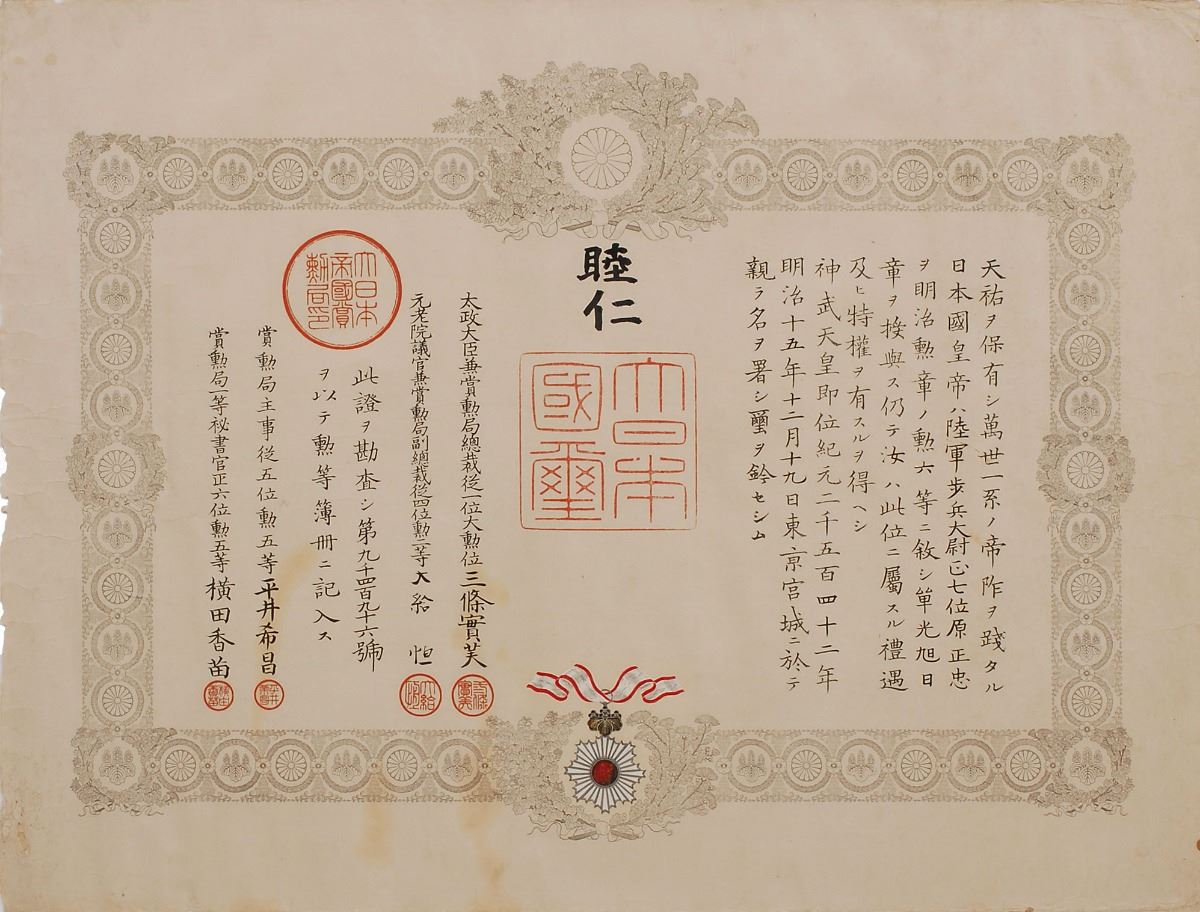 天祐ヲ保有シ萬世一系ノ帝祚ヲ踐タル
日本國皇帝ハ陸軍歩兵大尉正七位原正忠
ヲ明治勲章ノ勲六等ニ敘シ單光旭日
章ヲ授與ス仍テ汝ハ此位ニ屬スル禮遇
及ヒ特權ヲ有スルヲ得ヘシ
神武天皇即位紀元二千五百四十二年
明治十五年十二月十九日東亰宮城ニ於テ
親ラ名ヲ署シ璽ヲ鈐セシム
睦仁
大日本
國璽
太政大臣兼賞勲局總裁從一位大勲位三條實美
三條實美
元老院議官兼賞勲局副總裁從四位勲二等大給恒
大給
大日本
帝國賞
勲局印
此證ヲ勘査シ第九千四百九十六號
ヲ以テ勲等簿册ニ記入ス
賞勲局主事從五位勲五等平井希昌
平井希昌
賞勲局一等秘書官正六位勲五等橫田香苗
橫田香苗